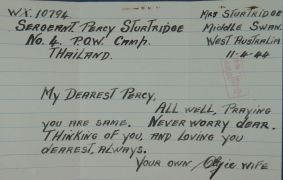 WX. 10794.
SERGEANT PERCY STURTRIDGE
NO. 4. P.O.W. CAMP.
THAILAND.
MRS STURTRIDGE
MIDDLE SWAN.
WEST AUSTRALIA
11-4-44
MY DEAREST PERCY,
ALL WELL, PRAYING
YOU ARE SAME. NEVER WORRY DEAR.
THINKING OF YOU, AND LOVING YOU
DEAREST, ALWAYS.
YOUR OWN WIFE